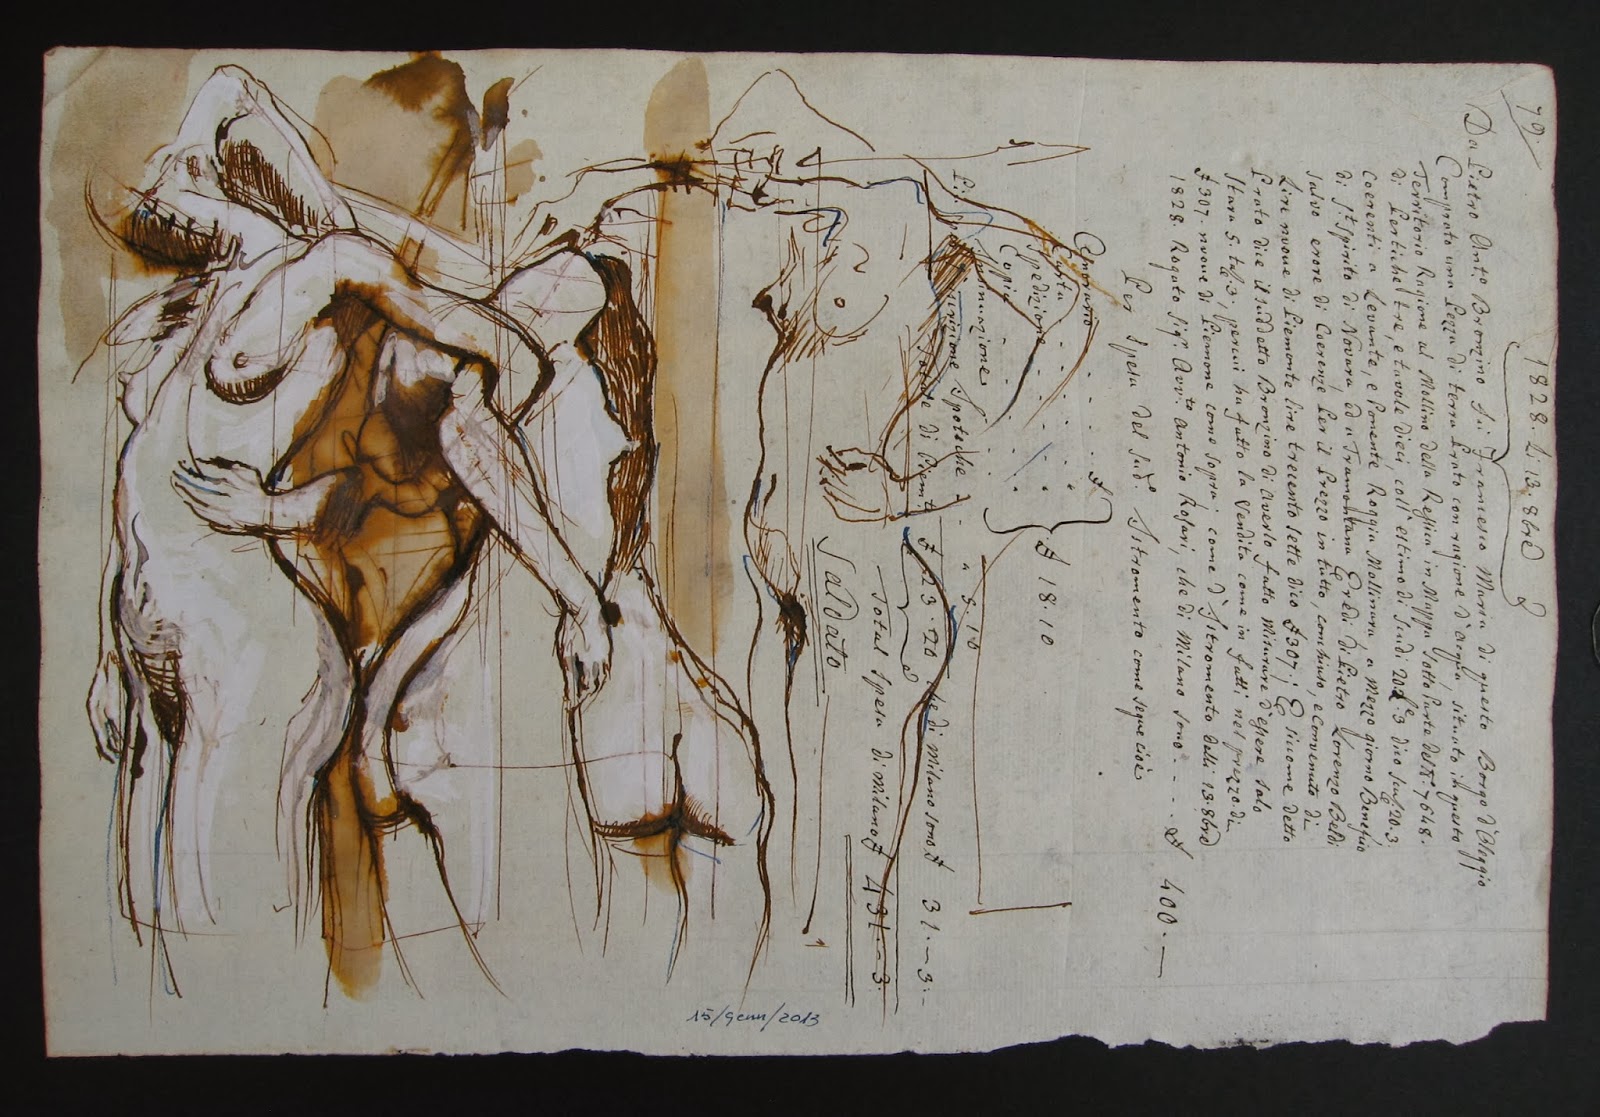 79.
1828. Li 13. 8bre
Da Pietro Ant.o Bronzino fu Francesco Maria di questo Borgo d'Oleggio
Comprato una Pezza di terra Prato con ragione d'acqua, situato in questo
Territorio Regione al Mollino della Resiga in Mappa sotto Parte del N. 7648.
di Pertiche tre, e tavole dieci, coll'estimo di Scudi 20 3 dico Scudi 20.3.
Coerenti a Levante, e Ponente Roggia Mollinara, a Mezzo giorno Beneficio
di S.t Spirito di Novara ed a Tramontana Eredi di Pietro Lorenzo Beldi
salvo errore di Coerenze per il Prezzo in tutto, conchiuso, e convenuto di
Lire nuove di Piemonte lire trecento sette dico £ 307; E siccome detto
Prato dice il suddetto Bronzino di averlo fatto Misurare d'essere solo
Stara 5. ta 3, per cui ha fatto la Vendita come in fatti nel prezzo di
£ 307. nuove di Piemonte come sopra: come d'Istromento delli 13. 8bre
1828. Rogato Sig.r Avv.to Antonio Rosari, che di Milano sono . . . . £ 400.—
Per Spesa del sud.o Istromento come segue cioè
Onorario
Carta
Spedizione
Copia . . . £ 18.10
Insinuazione
Ipoteche " 5.10
£ 23.20 che di Milano sono £ 31.—3.—
Total Spesa di Milano £ 431.—3.
Saldato
15/genn/2013